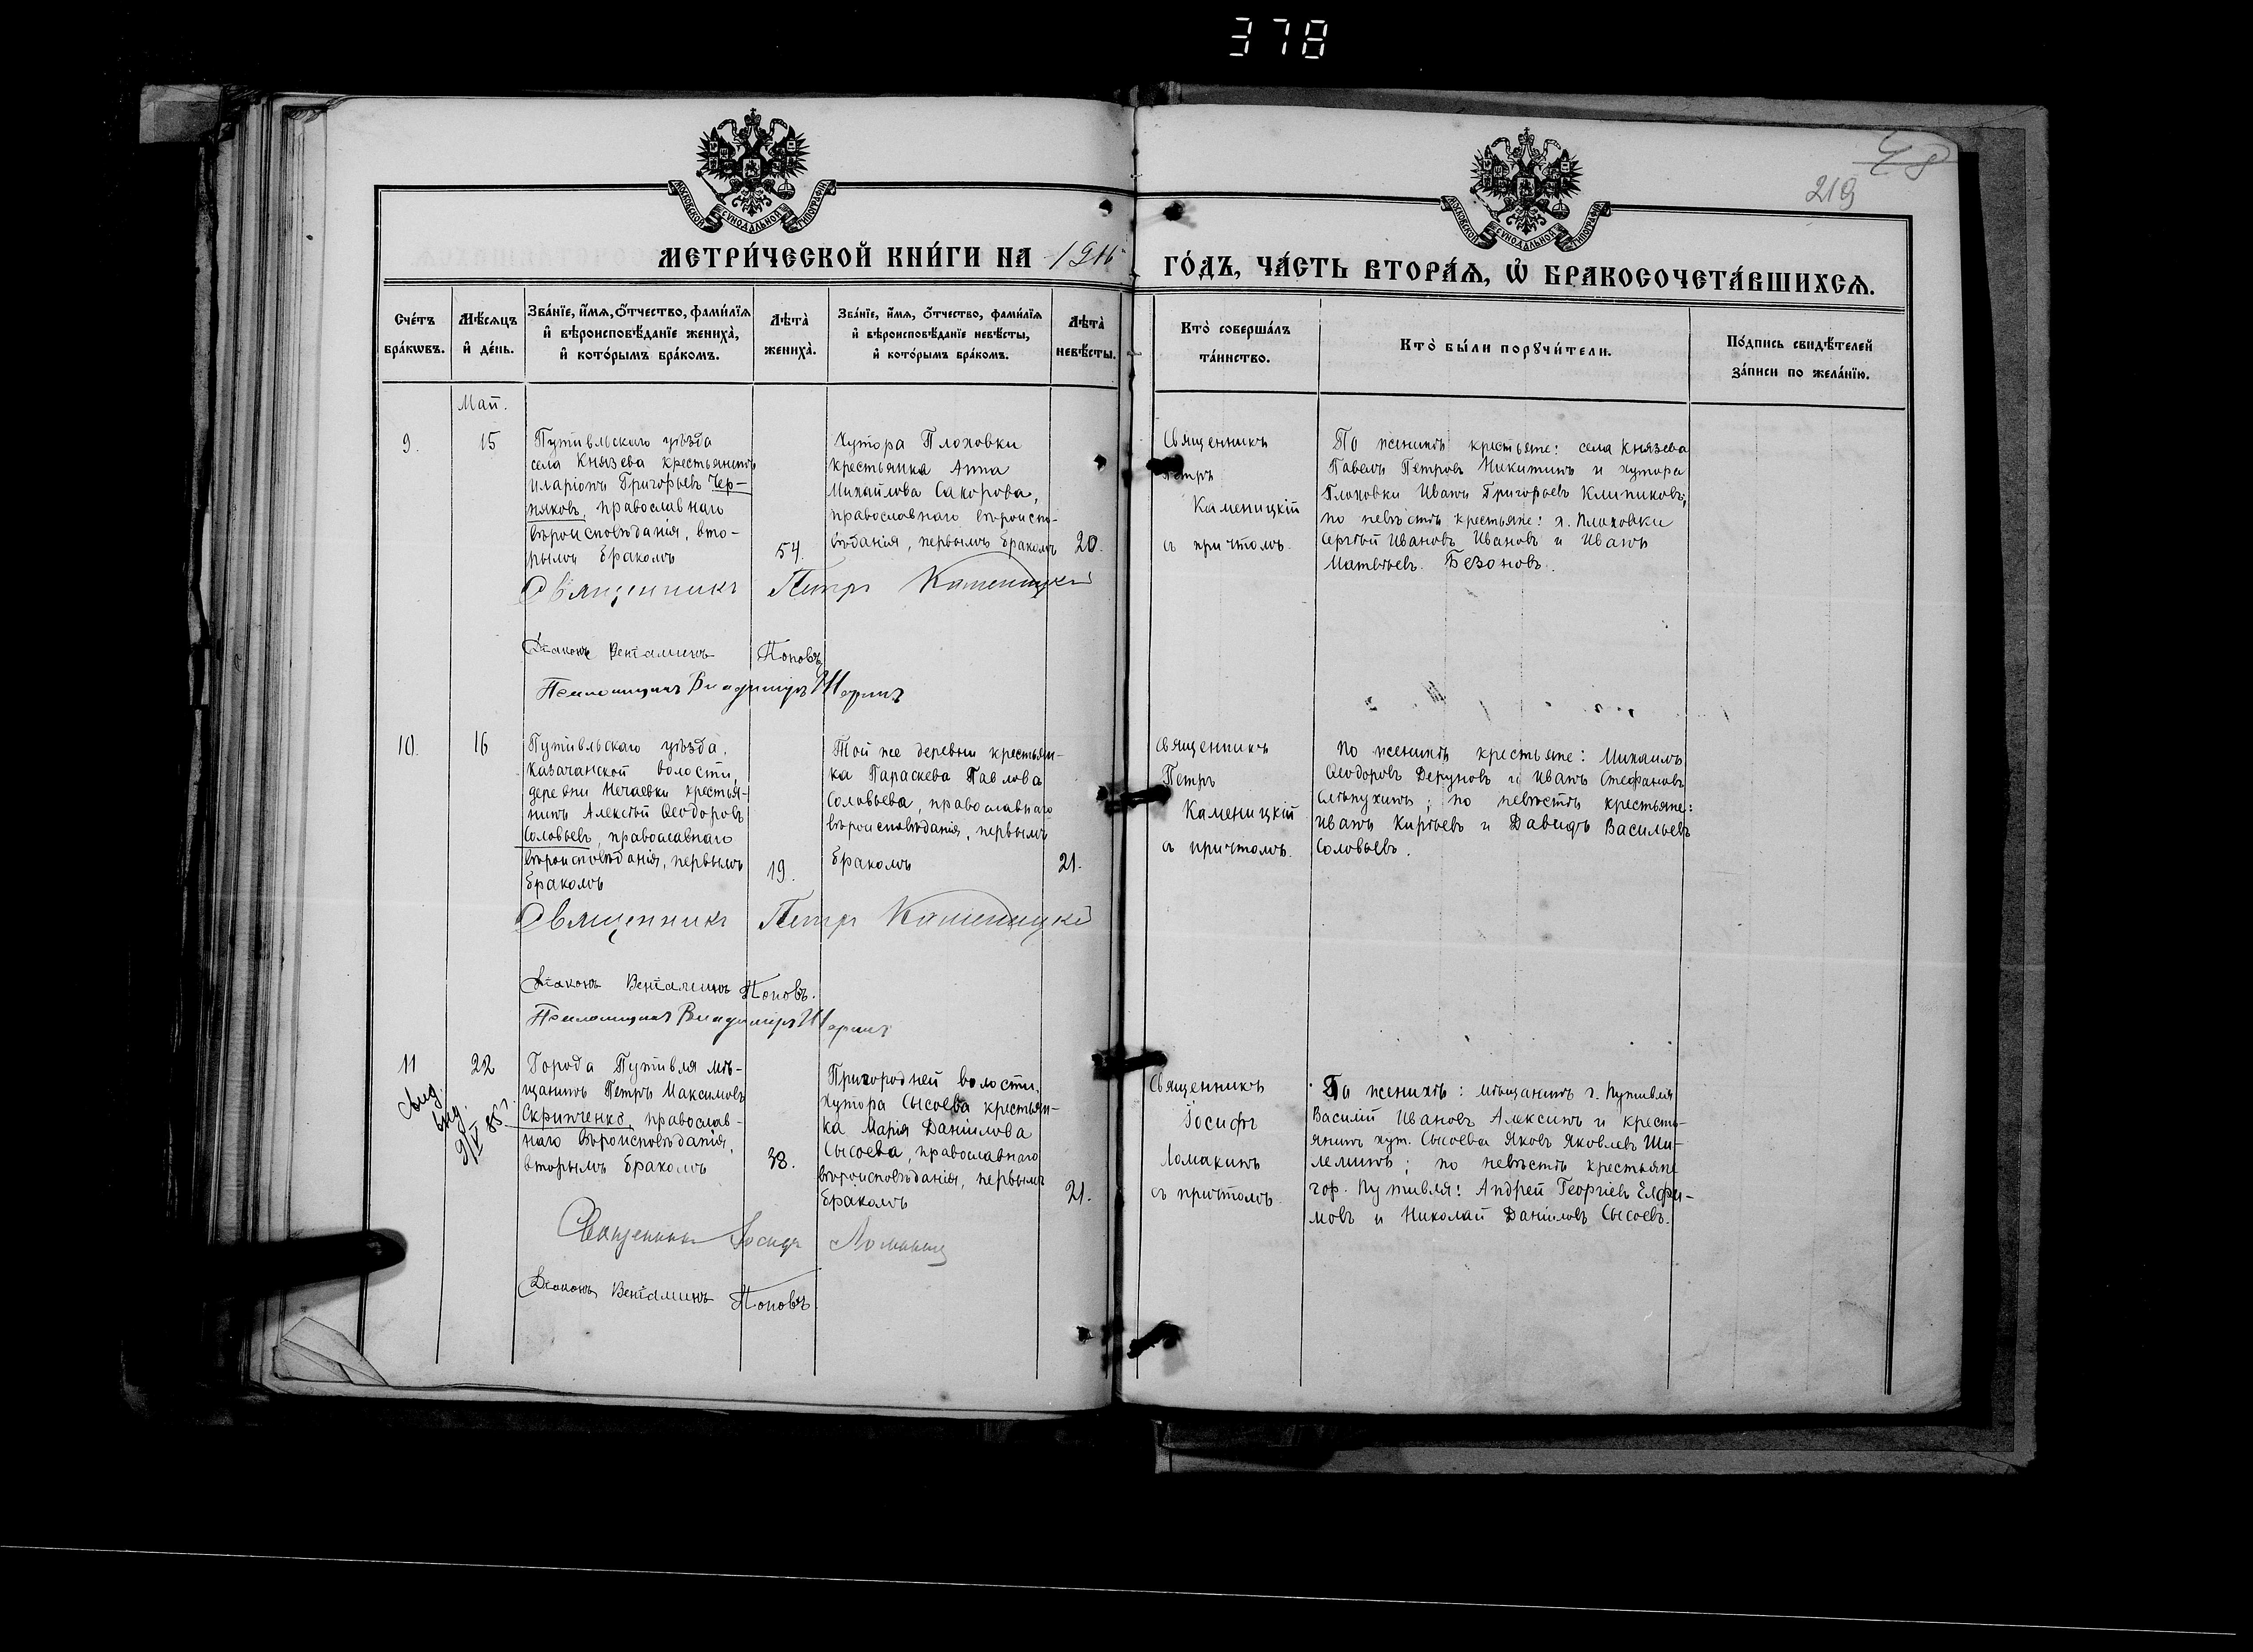 378
219
МОСКОВСКОЙ СѴНОДАЛЬНОЙ ТИПОГРАФІИ
МОСКОВСКОЙ СѴНОДАЛЬНОЙ ТИПОГРАФІИ
МЕТРИ́ЧЕСКОЙ КНИ́ГИ НА 1916
ГО́ДЪ, ЧА́СТЬ ВТОРА́Ѧ, Ѡ҆ БРАКОСОЧЕТА́ВШИХСѦ.
Сче́тъ
бра́кѡвъ.
Мѣ́сѧцъ
и҆ де́нь.
Зва́нїе, и҆́мѧ, ѻ҆́тчество, фами́лїѧ
и҆ вѣроисповѣ́данїе жениха̀,
и҆ кото́рымъ бра́комъ.
Лѣта̀
жениха̀.
Зва́нїе, и҆́мѧ, ѻ҆́тчество, фами́лїѧ
и҆ вѣроисповѣ́данїе невѣ́сты,
и҆ кото́рымъ бра́комъ.
Лѣта̀
невѣ́сты.
Кто̀ соверша́лъ
та́инство.
Кто̀ бы́ли порꙋчи́тели.
По́дпись свидѣ́телей
за́писи по жела́нїю.
Май.
9.
15
Путивльскаго уѣзда
села Князева крестьянинъ
Иларіонъ Григорьевъ Чер-
няковъ, православнаго
вѣроисповѣданія, вто-
рымъ бракомъ
54.
Хутора Плоховки
крестьянка Анна
Михайлова Сакорова,
православнаго вѣроиспо-
вѣданія, первымъ бракомъ
20.
Священникъ
Петръ
Каменицкій
съ причтомъ.
По женихѣ крестьяне: села Князева
Павелъ Петровъ Никитинъ и хутора
Плоховки Иванъ Григорьевъ Клипиковъ;
по невѣстѣ крестьяне: х. Плоховки
Сергѣй Ивановъ Ивановъ и Иванъ
Матвѣевъ Безоновъ.
Священникъ Петръ Каменицкій
Діаконъ Веніаминъ Поповъ
Псаломщикъ Владиміръ
10.
16
Путивльскаго уѣзда,
Казачанской волости,
деревни Нечаевки крестья-
нинъ Алексѣй Ѳеодоровъ
Соловьевъ, православнаго
вѣроисповѣданія, первымъ
бракомъ
19.
Той же деревни крестьян-
ка Параскева Павлова
Соловьева, православнаго
вѣроисповѣданія, первымъ
бракомъ
21.
Священникъ
Петръ
Каменицкій
съ причтомъ.
По женихѣ крестьяне: Михаилъ
Ѳеодоровъ Деруновъ и Иванъ Стефановъ
Слѣпухинъ; по невѣстѣ крестьяне:
Иванъ Кирѣевъ и Давидъ Васильевъ
Соловьевъ.
Священникъ Петръ Каменицкій
Діаконъ Веніаминъ Поповъ.
Псаломщикъ Владиміръ
11
22
Города Путивля мѣ-
щанинъ Петръ Максимовъ
Скрипченко, православ-
наго вѣроисповѣданія,
вторымъ бракомъ
38.
Пригородней волости,
хутора Сысоева крестьян-
ка Марія Даніилова
Сысоева, православнаго
вѣроисповѣданія, первымъ
бракомъ
21.
Священникъ
Іосифъ
Ломакинъ
съ причтомъ.
По женихѣ: мѣщанинъ г. Путивля
Василій Ивановъ Алексинъ и кресть-
янинъ хут. Сысоева Яковъ Яковлевъ Ши-
лелинъ; по невѣстѣ крестьяне
гор. Путивля: Андрей Георгіевъ Елфи-
мовъ и Николай Даніиловъ Сысоевъ.
Священникъ Іосифъ Ломакинъ
Діаконъ Веніаминъ Поповъ.